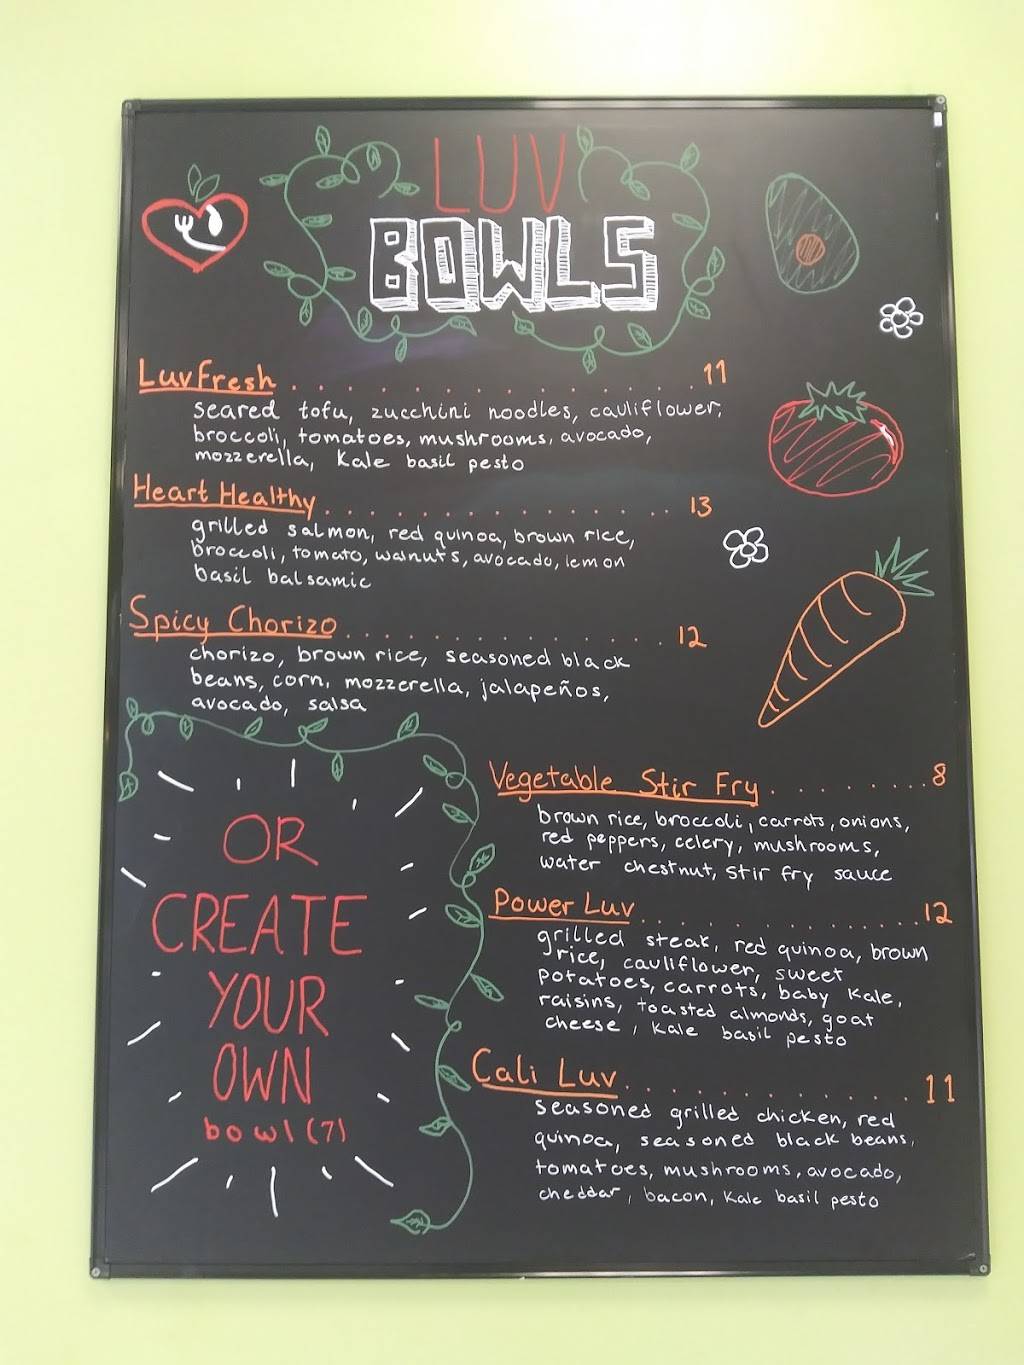 LUV
BOWLS
Luv Fresh . . . . . . . . . . . . . . . . . . 11
seared tofu, zucchini noodles, cauliflower,
broccoli, tomatoes, mushrooms, avocado,
mozzerella, Kale basil pesto
Heart Healthy . . . . . . . . . . . . . . . . 13
grilled salmon, red quinoa, brown rice,
broccoli, tomato, walnuts, avocado, lemon
basil balsamic
Spicy Chorizo . . . . . . . . . . . . . . . 12
chorizo, brown rice, seasoned black
beans, corn, mozzerella, jalapeños,
avocado, salsa
OR
CREATE
YOUR
OWN
bowl (7)
Vegetable Stir Fry . . . . . . . . 8
brown rice, broccoli, carrots, onions,
red peppers, celery, mushrooms,
water chestnut, stir fry sauce
Power Luv . . . . . . . . . . . . . 12
grilled steak, red quinoa, brown
rice, cauliflower, sweet
potatoes, carrots, baby Kale,
raisins, toasted almonds, goat
cheese, Kale basil pesto
Cali Luv . . . . . . . . . . . . 11
seasoned grilled chicken, red
quinoa, seasoned black beans,
tomatoes, mushrooms, avocado,
cheddar, bacon, Kale basil pesto